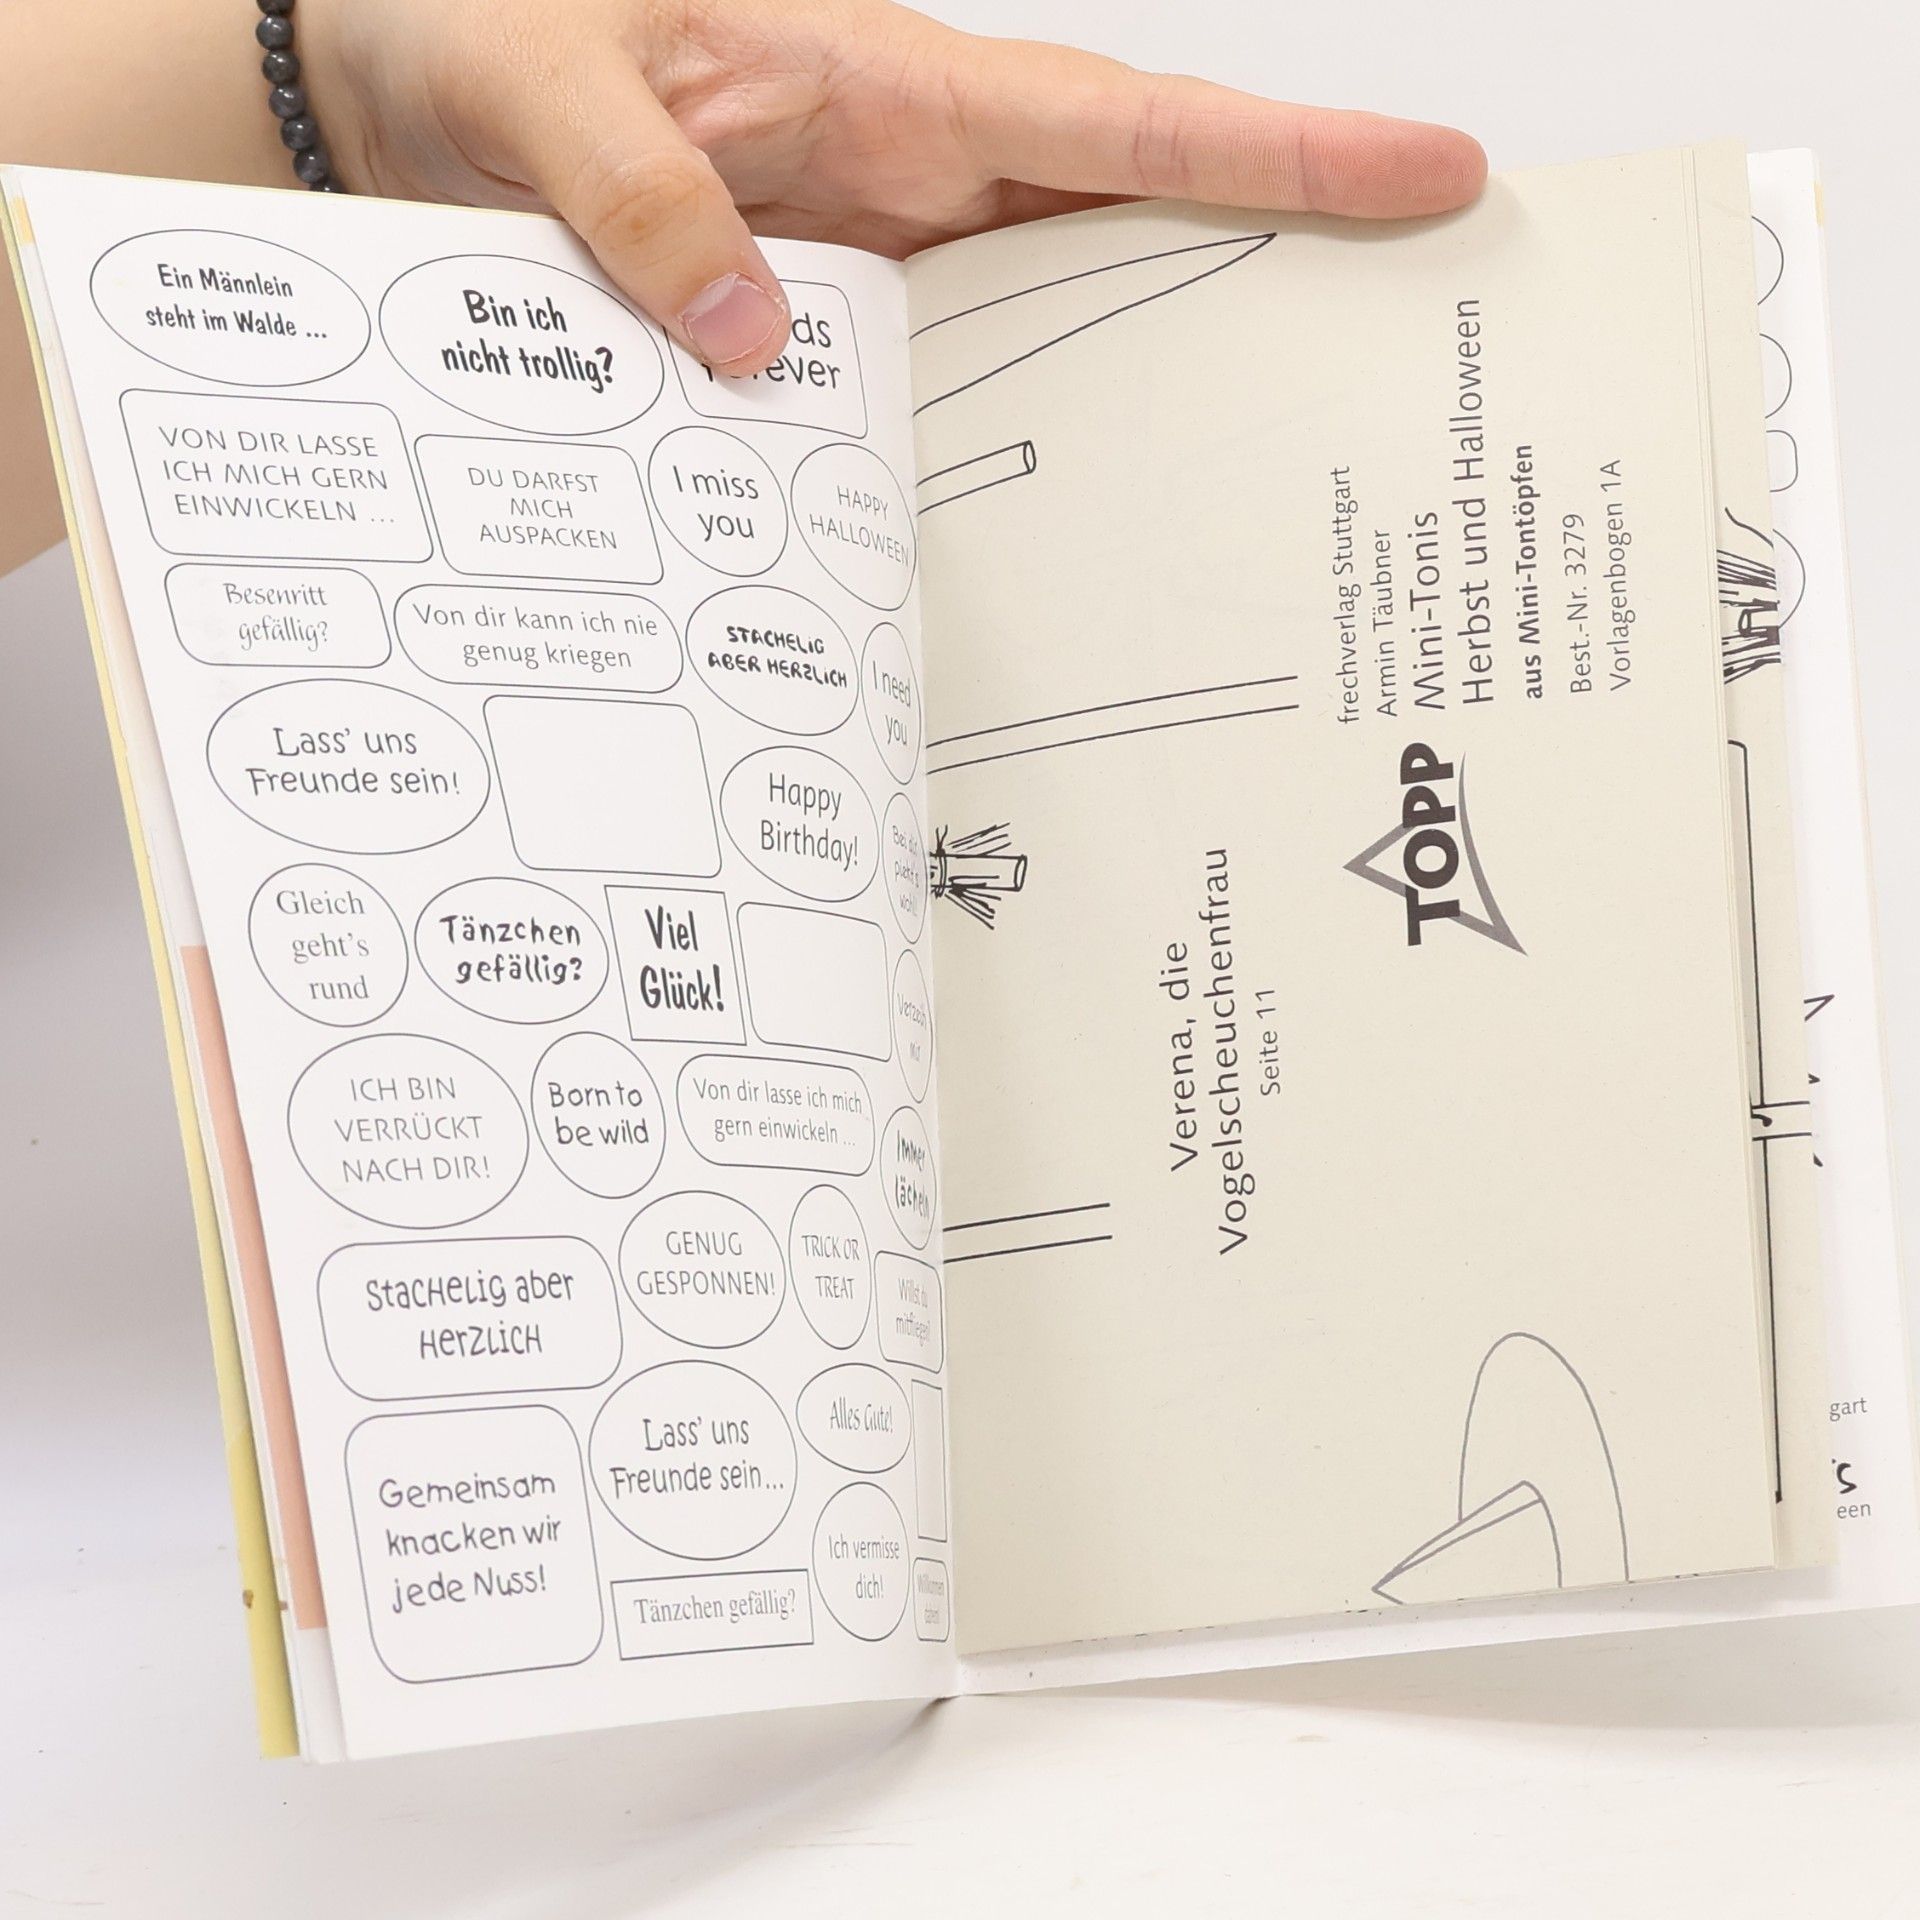 Ein Männlein
steht im Walde ...
Bin ich
nicht trollig?
VON DIR LASSE
ICH MICH GERN
EINWICKELN ...
DU DARFST
MICH
AUSPACKEN
I miss
you
HAPPY
HALLOWEEN
Besenritt
gefällig?
Von dir kann ich nie
genug kriegen
STACHELiG
ABER HERZLiCH
I need
you
Lass' uns
Freunde sein!
Happy
Birthday!
Gleich
geht's
rund
Tänzchen
gefällig?
Viel
Glück!
ICH BIN
VERRÜCKT
NACH DIR!
Born to
be wild
Von dir lasse ich mich
gern einwickeln ...
Immer
lächeln
StacHeLig aber
HerZLicH
GENUG
GESPONNEN!
TRICK OR
TREAT
Willst du
mitfliegen?
Gemeinsam
knacken wir
jede Nuss!
Lass' uns
Freunde sein...
Alles Gute!
Ich vermisse
dich!
Tänzchen gefällig?
Verena, die
Vogelscheuchenfrau
Seite 11
TOPP
frechverlag Stuttgart
Armin Täubner
Mini-Tonis
Herbst und Halloween
aus Mini-Tontöpfen
Best.-Nr. 3279
Vorlagenbogen 1A